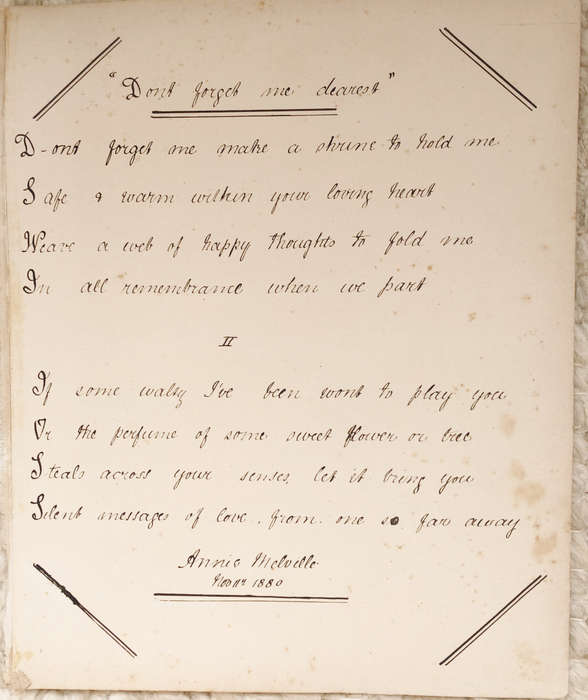 "Dont forget me dearest"
D-ont forget me make a shrine to hold me
Safe & warm within your loving heart
Weave a web of happy thoughts to fold me
In all remembrance when we part
II
If some waltz I've been wont to play you
Or the perfume of some sweet flower or tree
Steals across your senses, let it bring you
Silent messages of love. from. one so far away
Annie Melville
Novr 1880